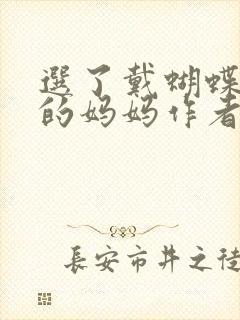 选了戴蝴蝶
的妈妈作者
長安市井之徒